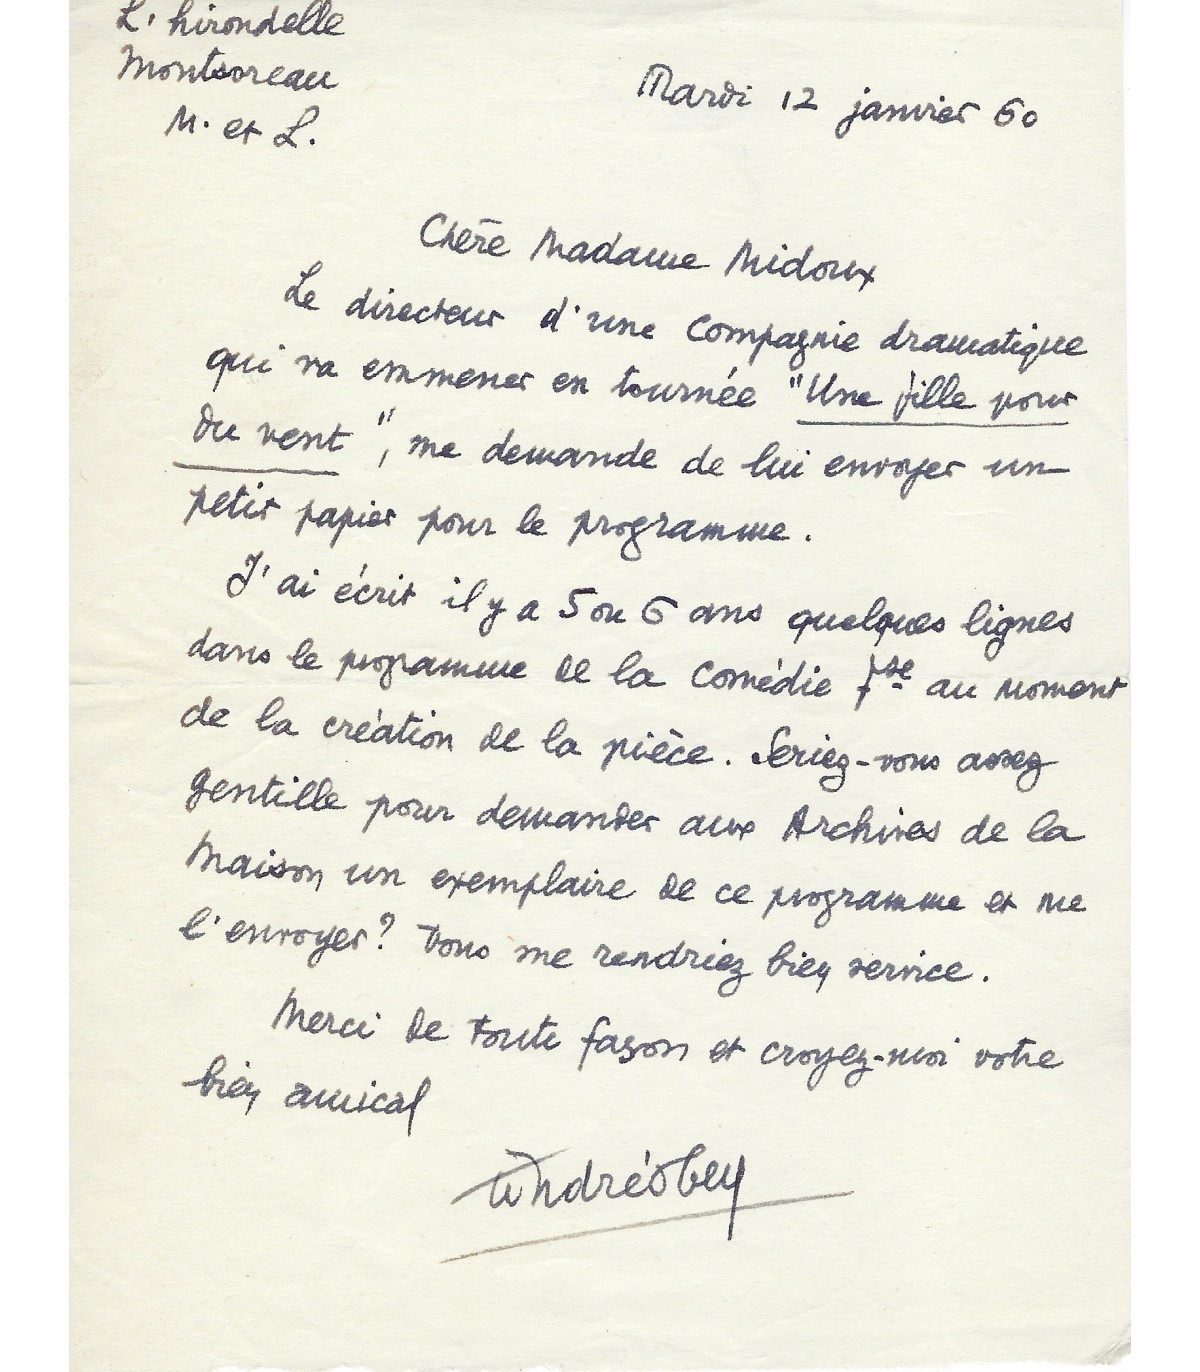 L'hirondelle
Montsoreau
M. et L.
Mardi 12 janvier 60
Chère Madame Midoux
Le directeur d'une Compagnie dramatique
qui va emmener en tournée "Une fille pour
du vent", me demande de lui envoyer un
petit papier pour le programme.
J'ai écrit il y a 5 ou 6 ans quelques lignes
dans le programme de la Comédie fse au moment
de la création de la pièce. Seriez-vous assez
gentille pour demander aux Archives de la
Maison un exemplaire de ce programme et me
l'envoyer? Vous me rendriez bien service.
Merci de toute façon et croyez-moi votre
bien amical
André Obey